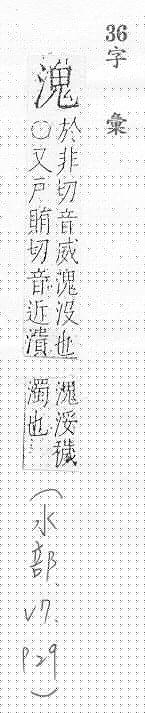 36
字彙
溾
於非切音威溾没也
○又戶賄切音近潰
溾涹穢
濁也
(水部. V7. P29)